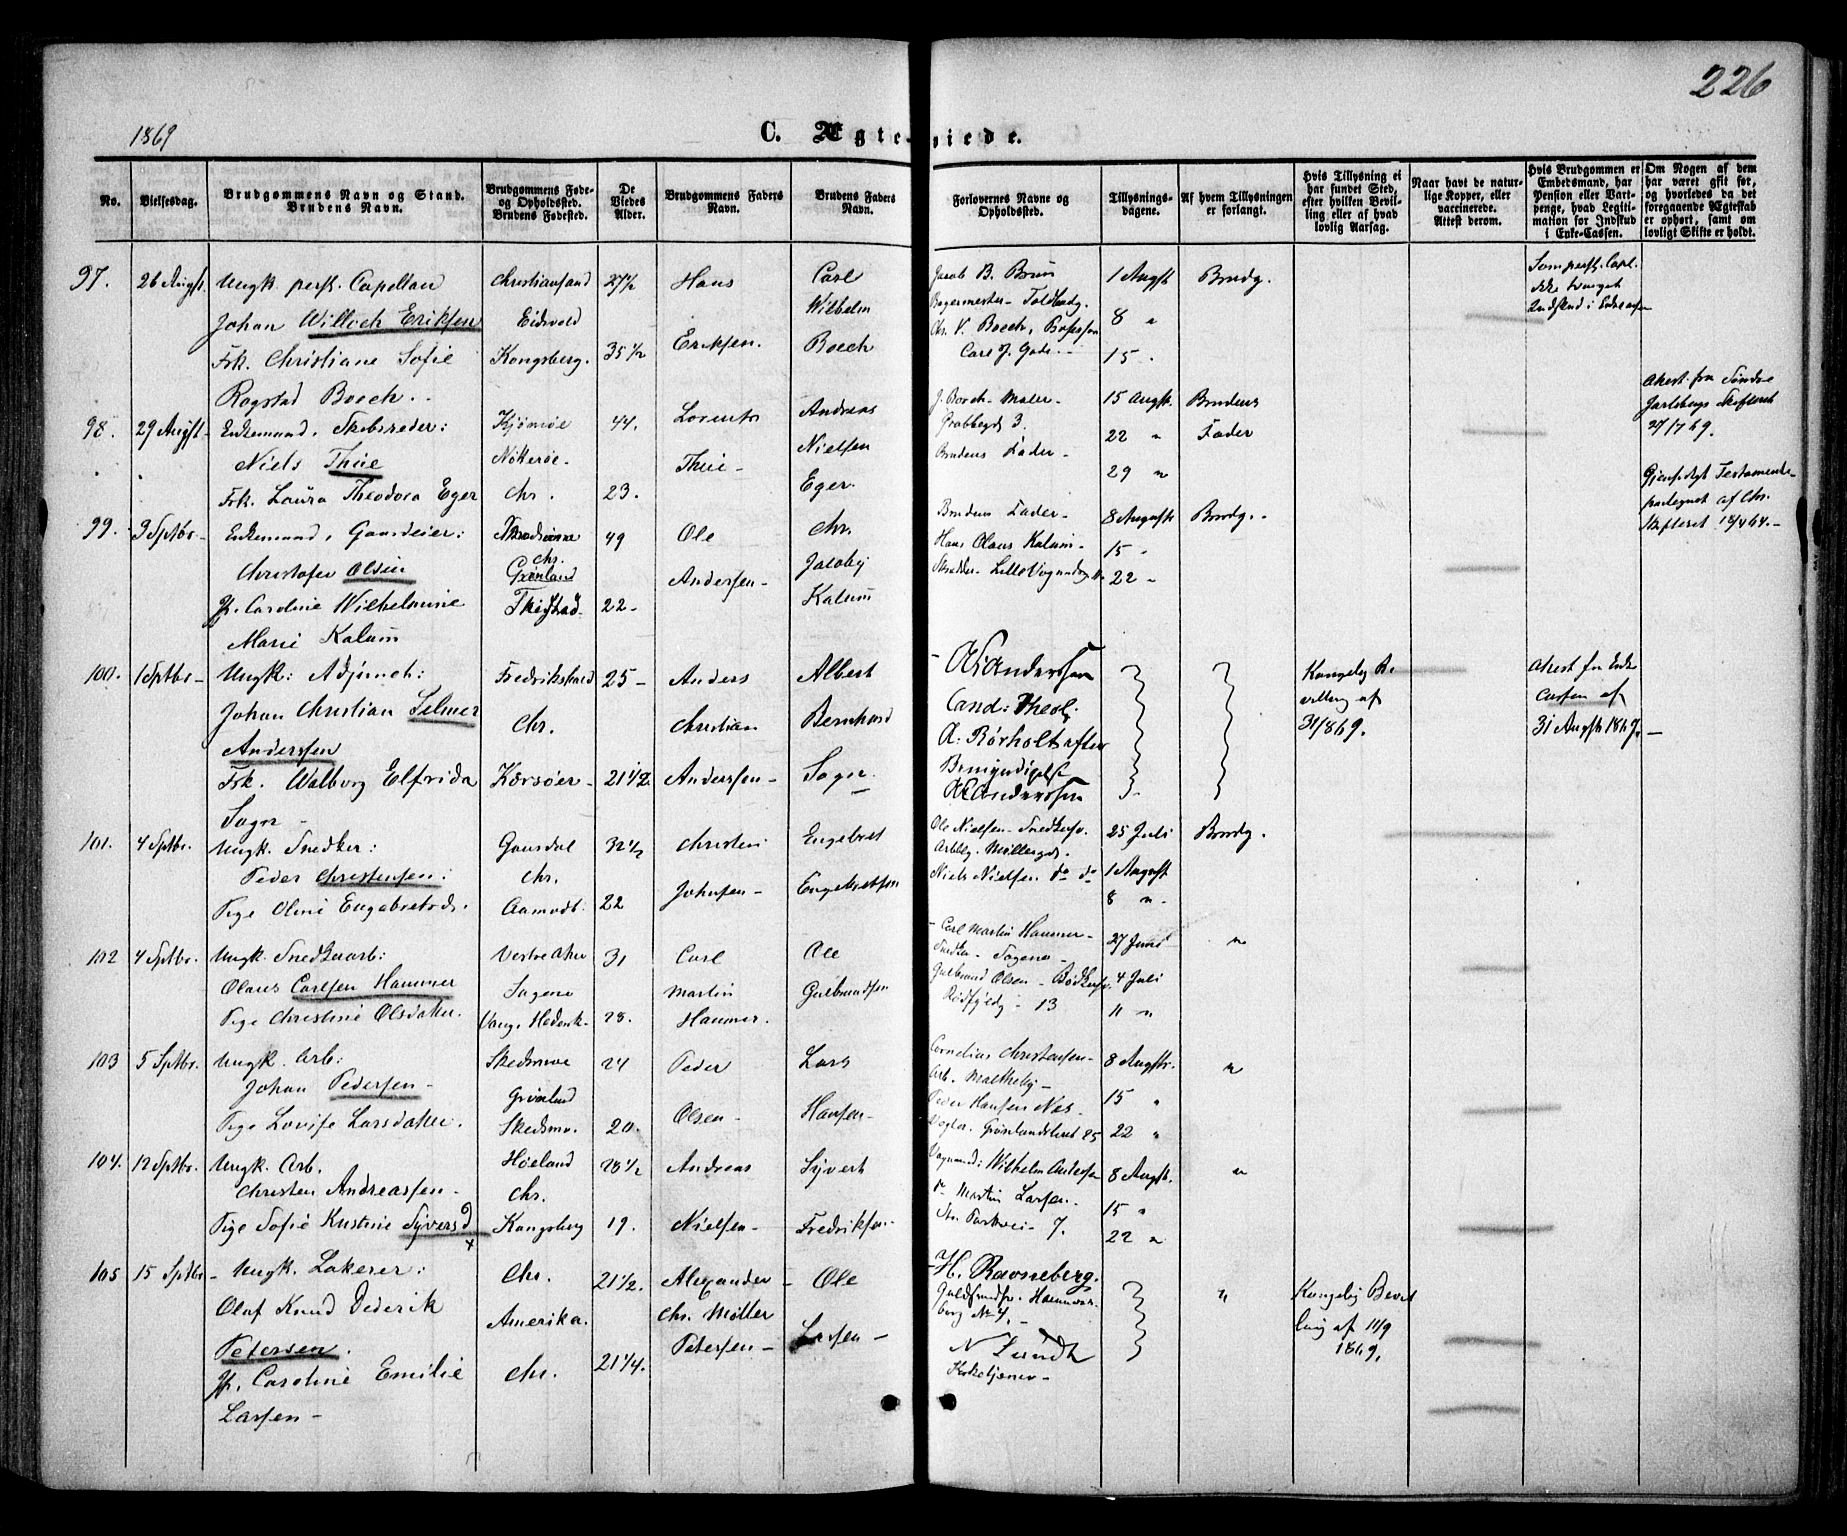 226
1869
C. Ægteviede.
No.
Vielsesdag.
Brudgommens Navn og Stand.
Brudens Navn.
Brudgommens Føde-
og Opholdssted.
Brudens Fødested.
De
Viedes
Alder.
Brudgommens Faders
Navn.
Brudens Faders
Navn.
Forlovernes Navne og
Opholdssted.
Tillysnings-
dagene.
Af hvem Tillysningen
er forlangt.
Hvis Tillysning ei
har fundet Sted,
efter hvilken Bevil-
ling eller af hvad
lovlig Aarsag.
Naar havt de natur-
lige Kopper, eller
vaccinerede.
Attest derom.
Hvis Brudgommen er
Embedsmand, har
Pension eller Vart-
penge, hvad Legiti-
mation for Indskud
i Enke-Cassen.
Om Nogen af dem
har været gift før,
og hvorledes da det
foregaaende Ægteskab
er ophørt, samt om
lovligt Skifte er holdt.
97. 26 Augst. Ungk. pers. Capellan
Johan Willoch Eriksen
Frk. Christiane Sofie
Rogstad Boeck.
Christiansand
Eidsvold
Kongsberg.
27½
35½
Hans
Eriksen.
Carl
Wilhelm
Boeck
Jacob B. Brun
Bagermester Toldbodg.
Chr. V. Boeck, Professor
Carl J. Gade.
1 Augst
8 "
15 .
Brudg.
Som pers. Capl.
ikke
Indskud i Enkecassen
98. 29 Augst. Enkemand, Skibsreder:
Niels Thue
Frk. Laura Theodora Eger
Kjømøe
Nøkerøe.
Chr.
44.
23.
Lorents
Thue
Andreas
Nielsen
Eger.
J. Borch Maler
Grubbegd 3.
Brudens Fader
15 Augst.
22 "
29 "
Brudens
Fader
Attest fra Søndre
Jarlsbergs Skifteret
27/7 69.
99. 3 Sptbr. Enkemand, Gaardeier:
Christofer Olsen
Jf. Caroline Wilhelmine
Marie Kalum
Chr.
Grønland
49
22
Ole
Andersen
Chr.
Jacoby
Kalum
Brudens Fader
Hans Olaus Kalum
8 Augst
15 "
22 "
Brudg.
Skifteret 18/4 64.
100. 1 Sptbr. Ungk: Adjunct:
Johan Christian Selmer
Anderssen
Frk. Walborg Elfrida
Fredrikstad
Chr.
25
21½
Anders
Christian
Anderssen
Albert
Bernhard
Anderssen
Cand: Theol.
A. Børholt efter
Bemyndigelse
Anderssen
Kongelig Be-
villing af
31/8 69.
Attest fra Enke
Cassen af
31 Augst 1869.
101. 4 Sptbr. Ungk. Snedker:
Peder Christensen.
Pige Oline Engebretsd.
Gausdal
Chr.
Aamodt.
32½
22
Christen
Johnsen
Engebret
Engebretsen
Ole Nielsen Snedkersv.
Arbbg. Møllergd.
Niels Nielsen do do
25 Juli
1 Augst
8 "
Brudg.
102 4 Sptbr. Ungk. Snedkerarb:
Olaus Carlsen Hammer
Pige Christine Olsdatter.
Vestre Aker
Sagene
Vang, Hedemk.
31
28.
Carl
Martin
Hammer.
Ole
Gulbrandsen
Carl Martin Hammer
Snedker Sagene
Gulbrand Olsen Bødkersv.
Rødfyldg 13
27 Juni
4 Juli
11 "
"
103 5 Sptbr. Ungk. Arb:
Johan Pedersen
Pige Lovise Larsdatter.
Skedsmoe
Grønland
Skedsmo.
24
20.
Peder
Olsen
Lars
Hansen
Cornelius Christensen
Arb. Maltheby
Peder Hansen Næs
Vogter. Grønlandsleret 85
8 Augst.
15 "
22 "
"
104. 12 Sptbr. Ungk. Arb.
Christen Andreassen
Pige Sofie Kristine Syversd
x
Høeland
Chr.
Kongsberg
28½
19.
Andreas
Nielsen
Syvert
Fredriksen
Vognmd: Wilhelm Andersen
do Martin Larsen.
Str. Parkvei 7.
8 Augst.
15 "
22 "
"
105 15 Sptbr Ungk. Lakerer:
Olaf Knud Dederik
Petersen.
Jf. Caroline Emilie
Larsen
Chr.
Amerika.
Chr.
21½.
21¼.
Alexander
Chr. Møller
Petersen
Ole
Larsen
H. Ravneberg.
Guldsmedsv. Hammers-
borg No 4.
N Lundt
Kirketjener
"
Kongelig Bevil
ling af 11/9
1869.